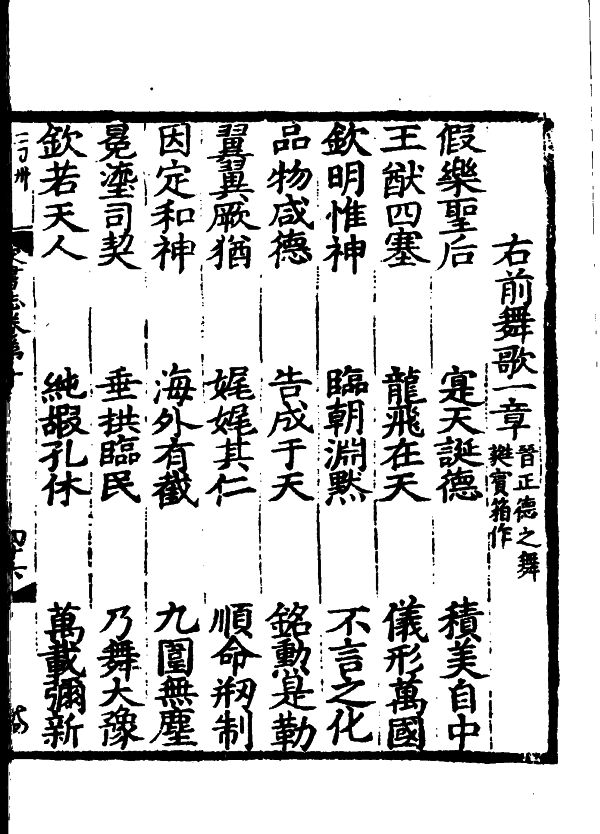 右前舞歌一章晉正德之舞
樊賓箱作
假樂聖后 寔天誕德 積美自中
王猷四塞 龍飛在天 儀形萬國
欽明惟神 臨朝淵默 不言之化
品物咸德 告成于天 銘勲是勒
翼翼厥猶 娓娓其仁 順命剏制
因定和神 海外有截 九圍無塵
冕瀅司契 垂拱臨民 乃舞大豫
欽若天人 純嘏孔休 萬載彌新